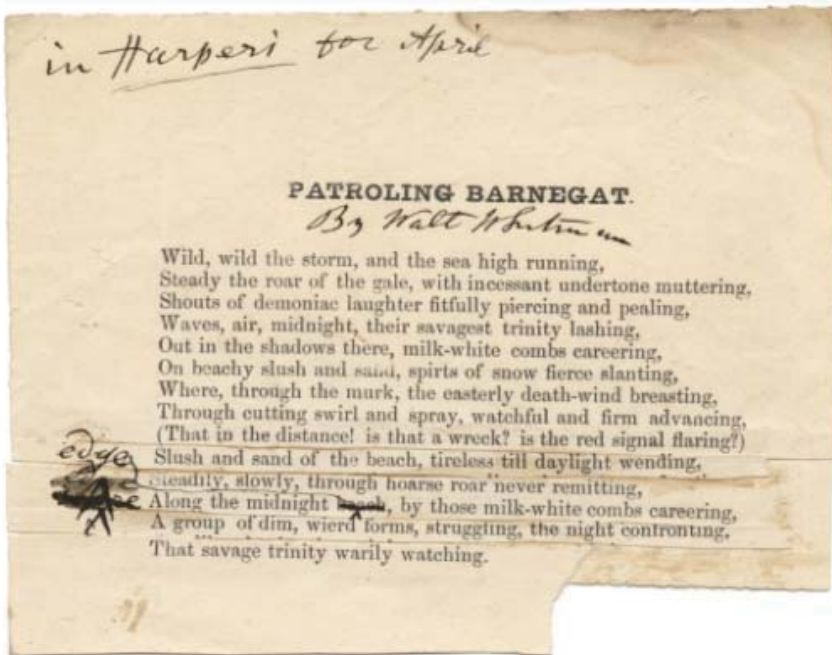 in Harpers for April
PATROLING BARNEGAT.
By Walt Whitman
Wild, wild the storm, and the sea high running,
Steady the roar of the gale, with incessant undertone muttering,
Shouts of demoniac laughter fitfully piercing and pealing,
Waves, air, midnight, their savagest trinity lashing,
Out in the shadows there, milk-white combs careering,
On beachy slush and sand, spirts of snow fierce slanting,
Where, through the murk, the easterly death-wind breasting,
Through cutting swirl and spray, watchful and firm advancing,
(That in the distance! is that a wreck? is the red signal flaring?)
edge
Slush and sand of the beach, tireless till daylight wending,
Steadily, slowly, through hoarse roar never remitting,
Along the midnight beach, by those milk-white combs careering,
A group of dim, wierd forms, struggling, the night confronting,
That savage trinity warily watching.